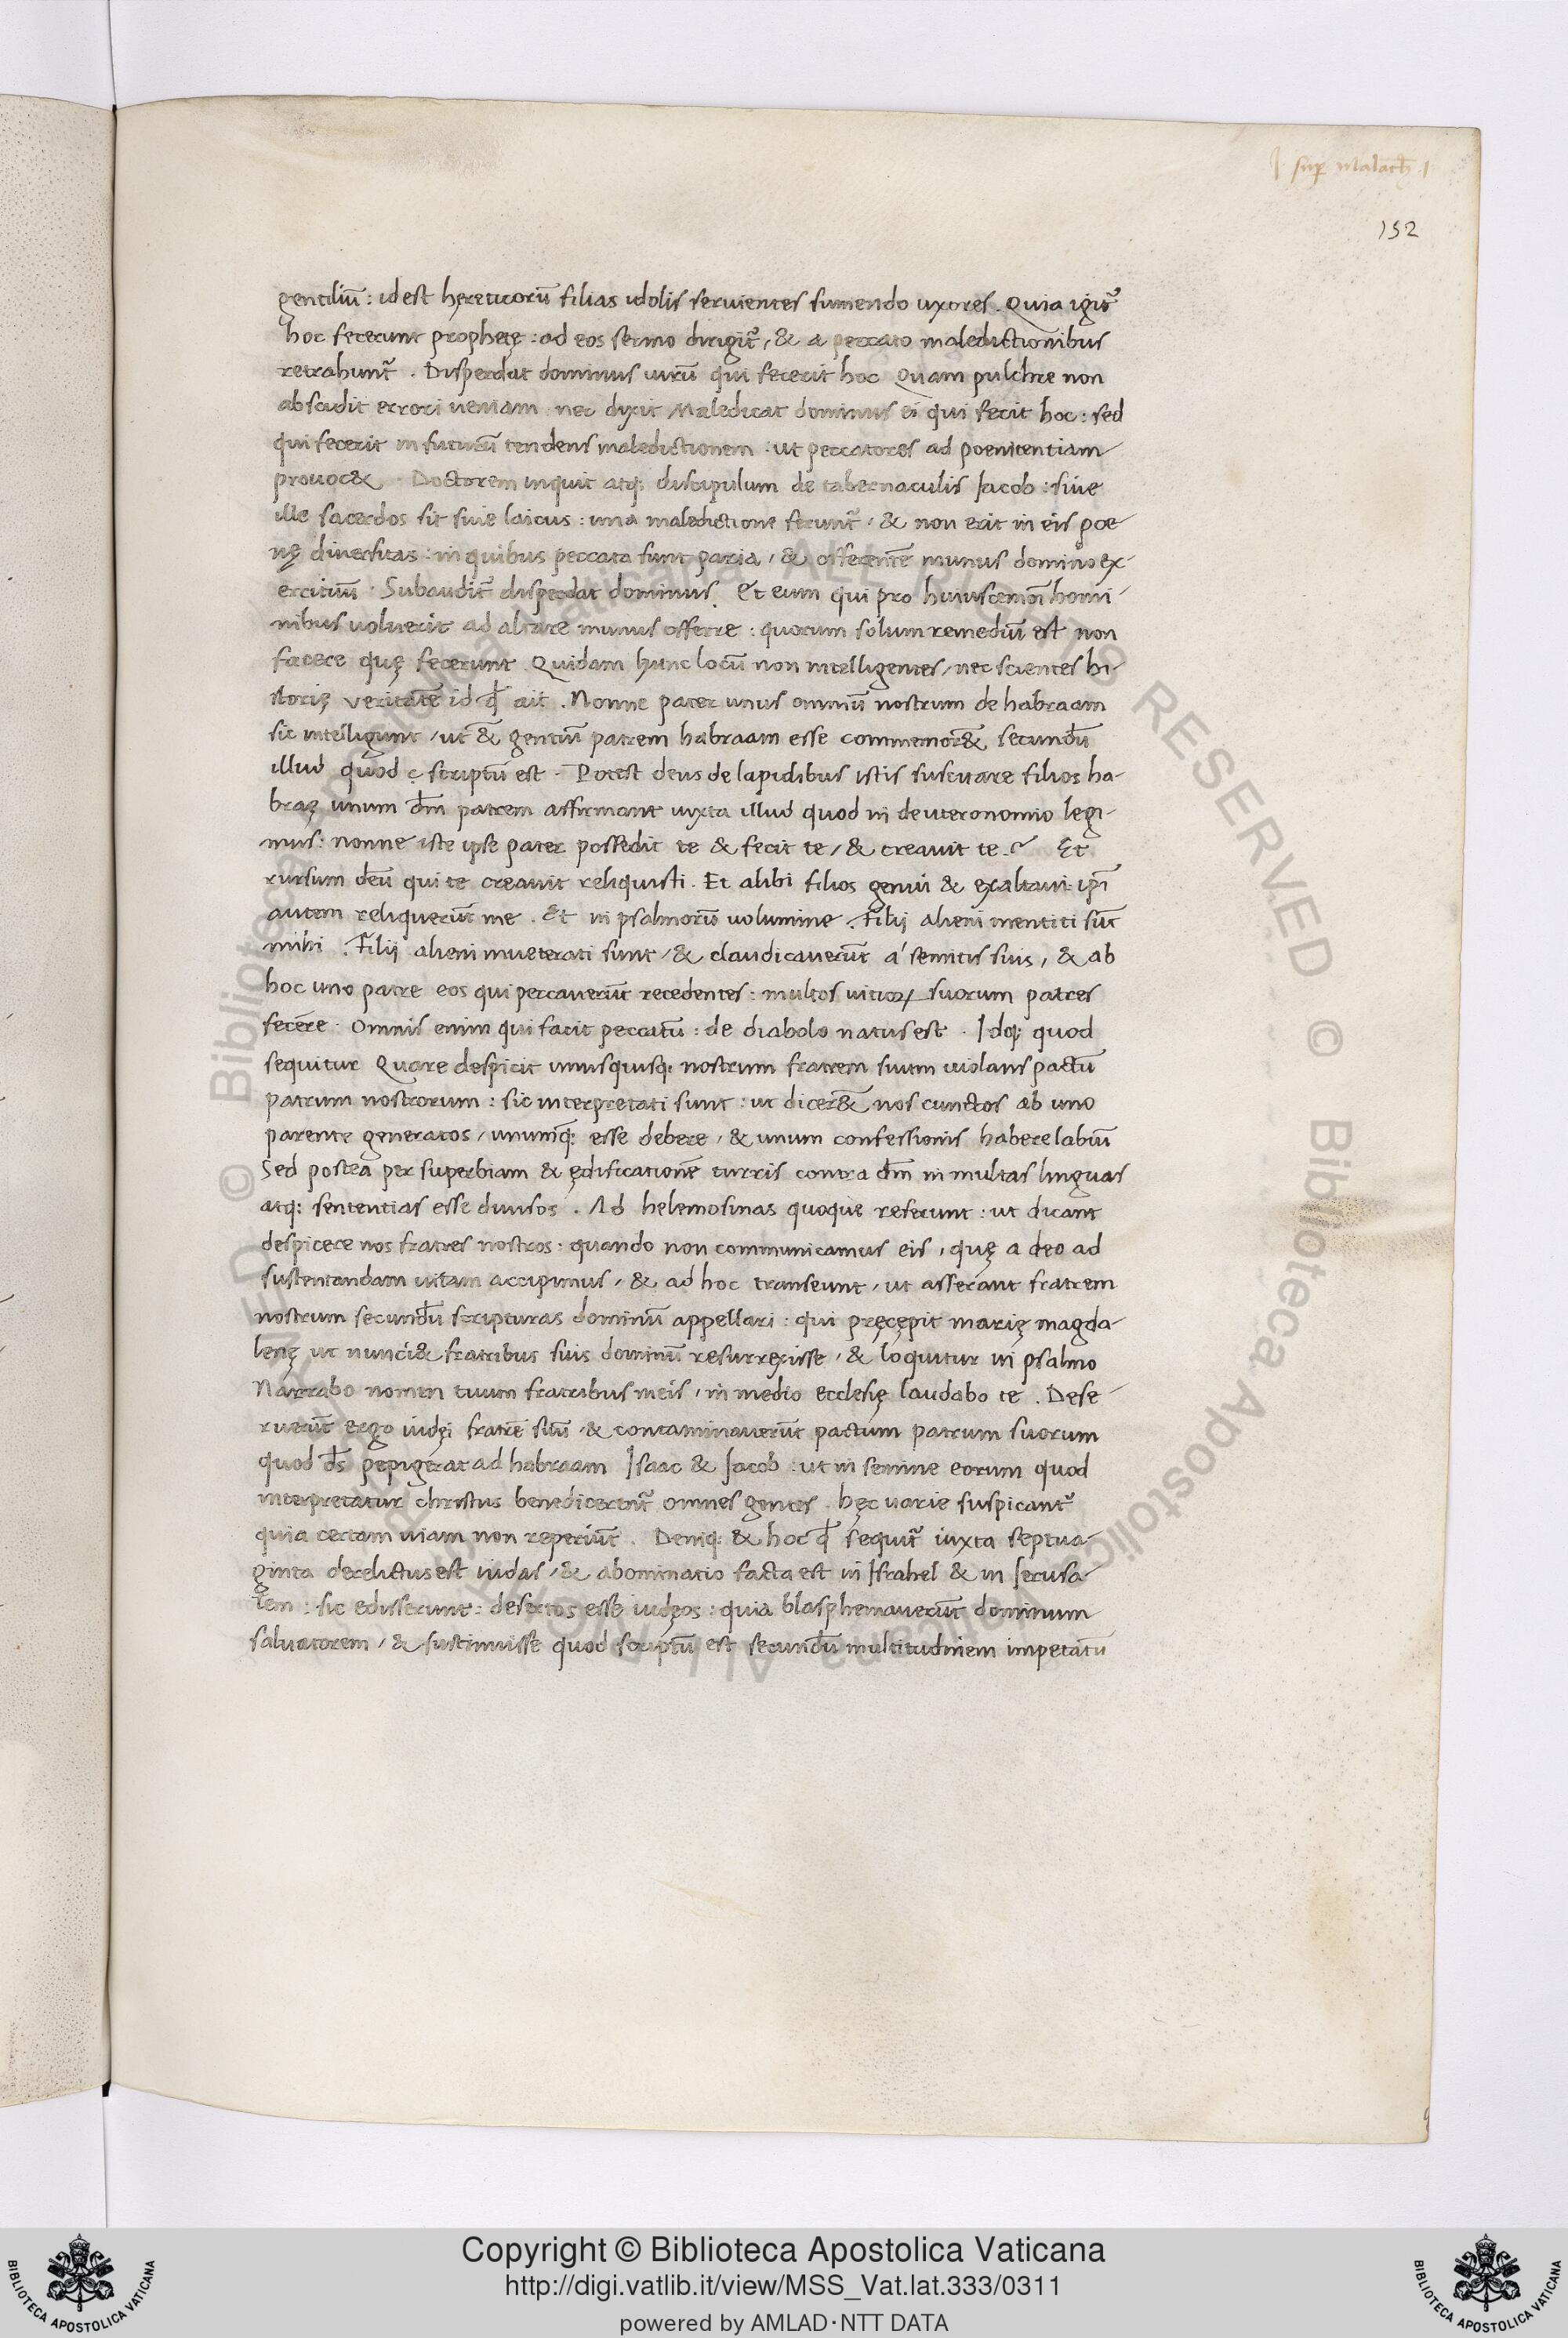 I sup Malach. I
152
gentiliū : idest hęreticorū filias idolis seruientes sumendo uxores . Quia igit᷑
hoc fecerunt prophetę : ad eos sermo dirigit᷑ , & a peccato maledictionibus
retrahunt᷑ . Disperdat dominus uirū qui fecerit hoc Quam pulchre non
abscidit errori ueniam nec dixit Maledicat dominus ei qui fecit hoc : sed
qui fecerit in futurū tendens maledictionem : ut peccatores ad poenitentiam
prouoc& . Doctorem inquit atq; discipulum de tabernaculis Jacob : siue
ille sacerdos sit siue laicus : una maledictione ferunt᷑ , & non erit in eis poe
nę diuersitas : in quibus peccata sunt paria , & offerentē munus domino ex-
ercituū . Subaudit᷑ disperdat dominus . Et eum qui pro huiuscemōi homi-
nibus uoluerit ad altare munus offerre : quorum solum remediū est non
facere quę fecerunt . Quidam hunc locū non intelligentes , nec scientes hi-
storię veritatē id qđ ait . Nonne pater unus omniū nostrum de habraam
sic intelligunt , ut & gentiū patrem habraam esse commemor& secundū
illud quod ę scriptū est . Potest deus de lapidibus istis suscitare filios ha-
braę unum dm̄ patrem affirmant iuxta illud quod in deuteronomio legi-
mus : nonne iste ipse pater possedit te & fecit te , & creauit te ? Et
rursum deū qui te creauit reliquisti . Et alibi filios genui & exaltaui : ipī
autem reliquerūt me . Et in psalmorū uolumine . Filij alieni mentiti sūt
mihi . Filij alieni inueterati sunt , & claudicauerūt a' semitis suis , & ab
hoc uno patre eos qui peccauerūt recedentes : multos uitioꝝ suorum patres
fecere . Omnis enim qui facit peccatū : de diabolo natus est . Idq; quod
sequitur Quare despicit unusquisq; nostrum fratrem suum uiolans pactū
patrum nostrorum : sic interpretati sunt : ut dicer& nos cunctos ab uno
parente generatos , unumq; esse debere , & unum confessionis habere labiū
Sed postea per superbiam & ędificationē turris contra dm̄ in multas linguas
atq; sententias esse diuisos . Ad helemosinas quoque referunt : ut dicant
despicere nos fratres nostros : quando non communicamus eis , quę a deo ad
sustentandam uitam accipimus , & ad hoc transeunt , ut asserant fratrem
nostrum secundū scripturas dominū appellari : qui pręcępit marię magda-
lenę ut nunci& fratribus suis dominū resurrexisse , & loquitur in psalmo
Narrabo nomen tuum fratribus meis , in medio ecclesię laudabo te . Dese-
ruerūt ergo iudęi fratrē suū & contaminauerūt pactum patrum suorum
quod ds̄ pepigerat ad habraam Isaac & Jacob : ut in semine eorum quod
interpretatur christus benedicerent᷑ omnes gentes . hęc uarie suspicant᷑
quia certam uiam non reperiūt . Deniq; & hoc qđ sequit᷑ iuxta septua-
ginta derelictus est iudas , & abominatio facta est in Israhel & in Jerusa-
lem : sic edisserunt : desertos esse iudęos : quia blasphemauerūt dominum
saluatorem , & sustinuisse quod scriptū est secundū multitudinem impetatū
Copyright © Biblioteca Apostolica Vaticana
http://digi.vatlib.it/view/MSS_Vat.lat.333/0311
powered by AMLAD·NTT DATA